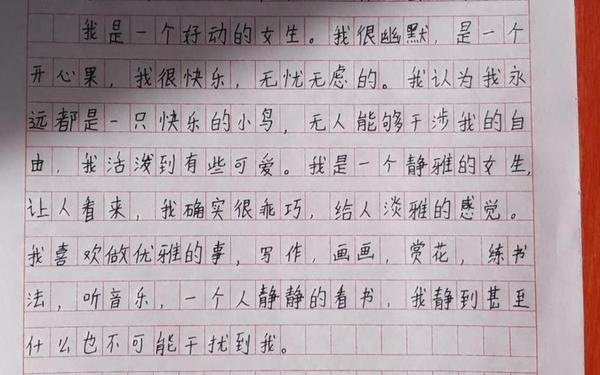 我是一个好动的女生。我很幽默，是一个
开心果，我很快乐，无忧无虑的。我认为我永
远都是一只快乐的小鸟，无人能够干涉我的自
由，我活泼到有些可爱。我是一个静雅的女生，
让人看来，我确实很乖巧，给人淡雅的感觉。
我喜欢做优雅的事，写作，画画，赏花，练书
法，听音乐，一个人静静的看书，我静到甚至
什么也不可能干扰到我。